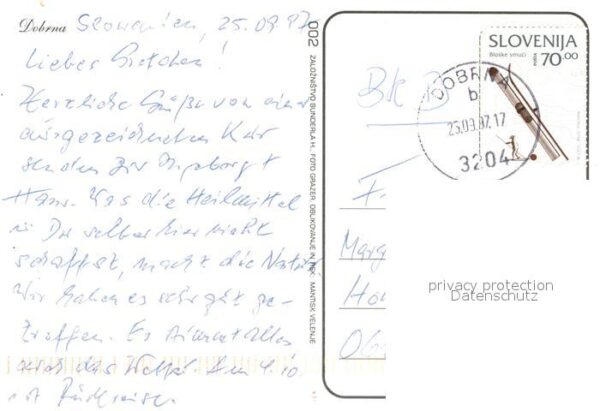 Dobrna Slowenien, 25.09.97
Liebes Gretchen!
Herzliche Grüße von einer
ausgezeichneten Kur
senden Dir Ingeborg +
Hans. Was die Heilmittel
Du selber hier nicht
schaffst, macht die Natur.
Wir haben es sehr gut ge-
troffen. Es stimmt alles
auch das Wetter. Am 4.10
ist Rückreise.
002 ZALOŽNIŠTVO BUNDERLA H., FOTO GRAZER, OBLIKOVANJE IN TISK: MANTISK VELENJE
SLOVENIJA
Bloške smuči
70.00
DOBRNA
b
25.09.97.17
3204
Marg
privacy protection
Datenschutz